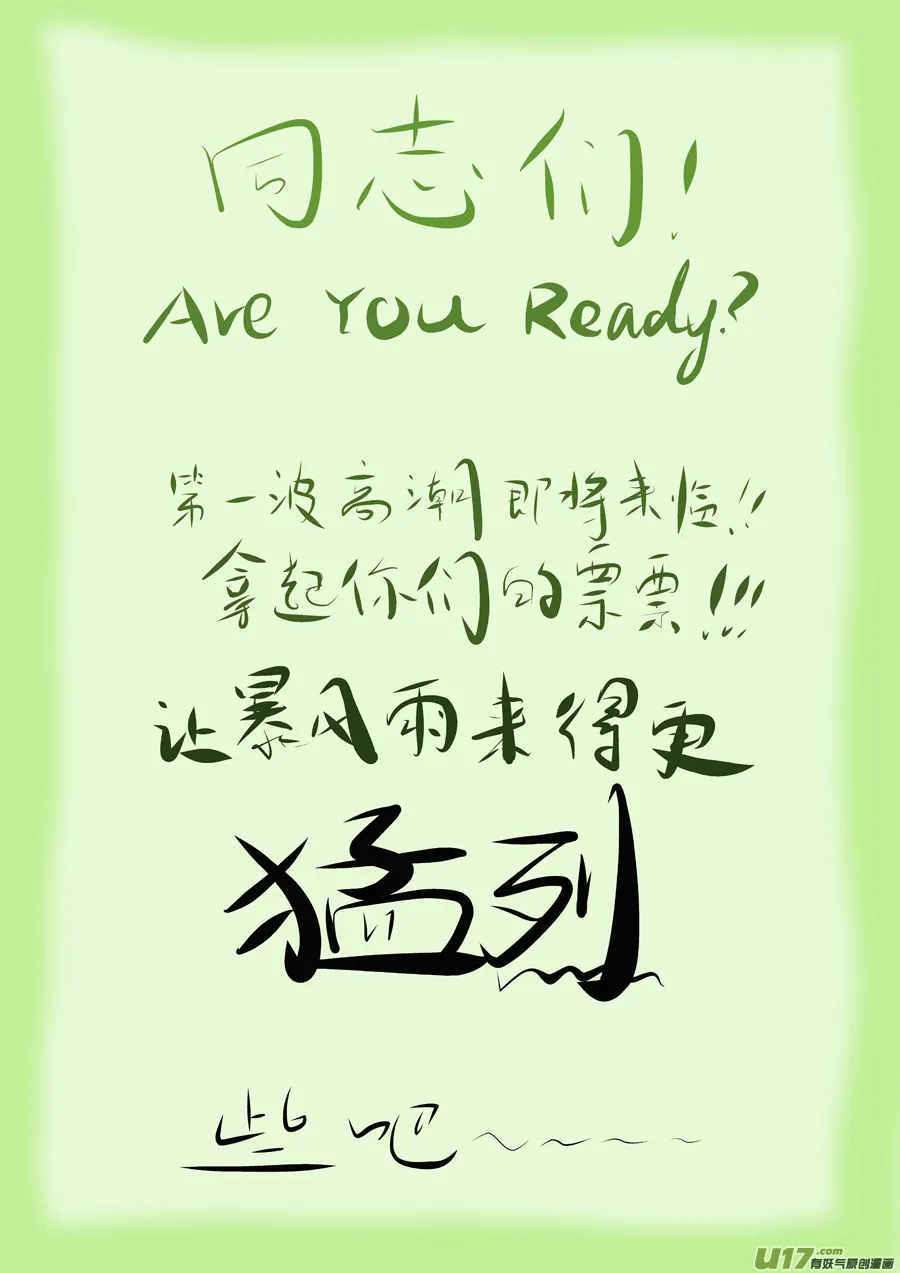 同志们!
Are You Ready?
第一波高潮即将来临!!
拿起你们的票票!!!
让暴风雨来得更
猛烈
些吧~~~~~
U17.com
有妖气原创漫画